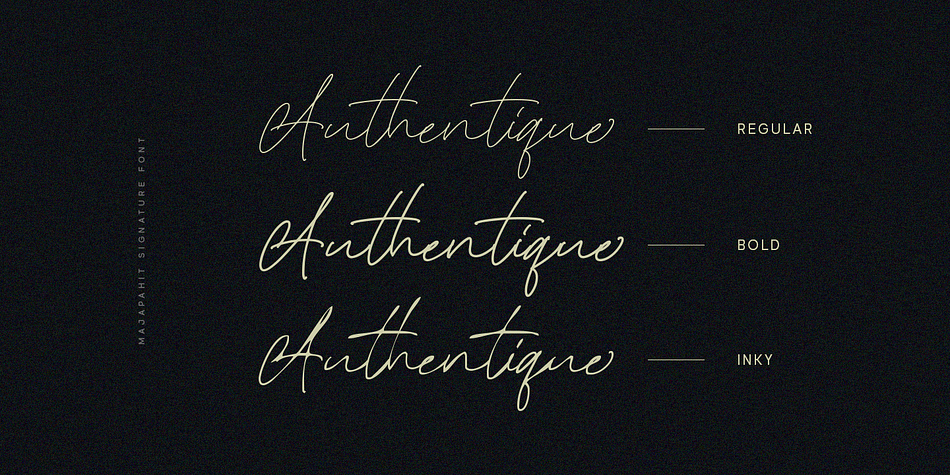 MAJAPAHIT SIGNATURE FONT
Authentique REGULAR
Authentique BOLD
Authentique INKY